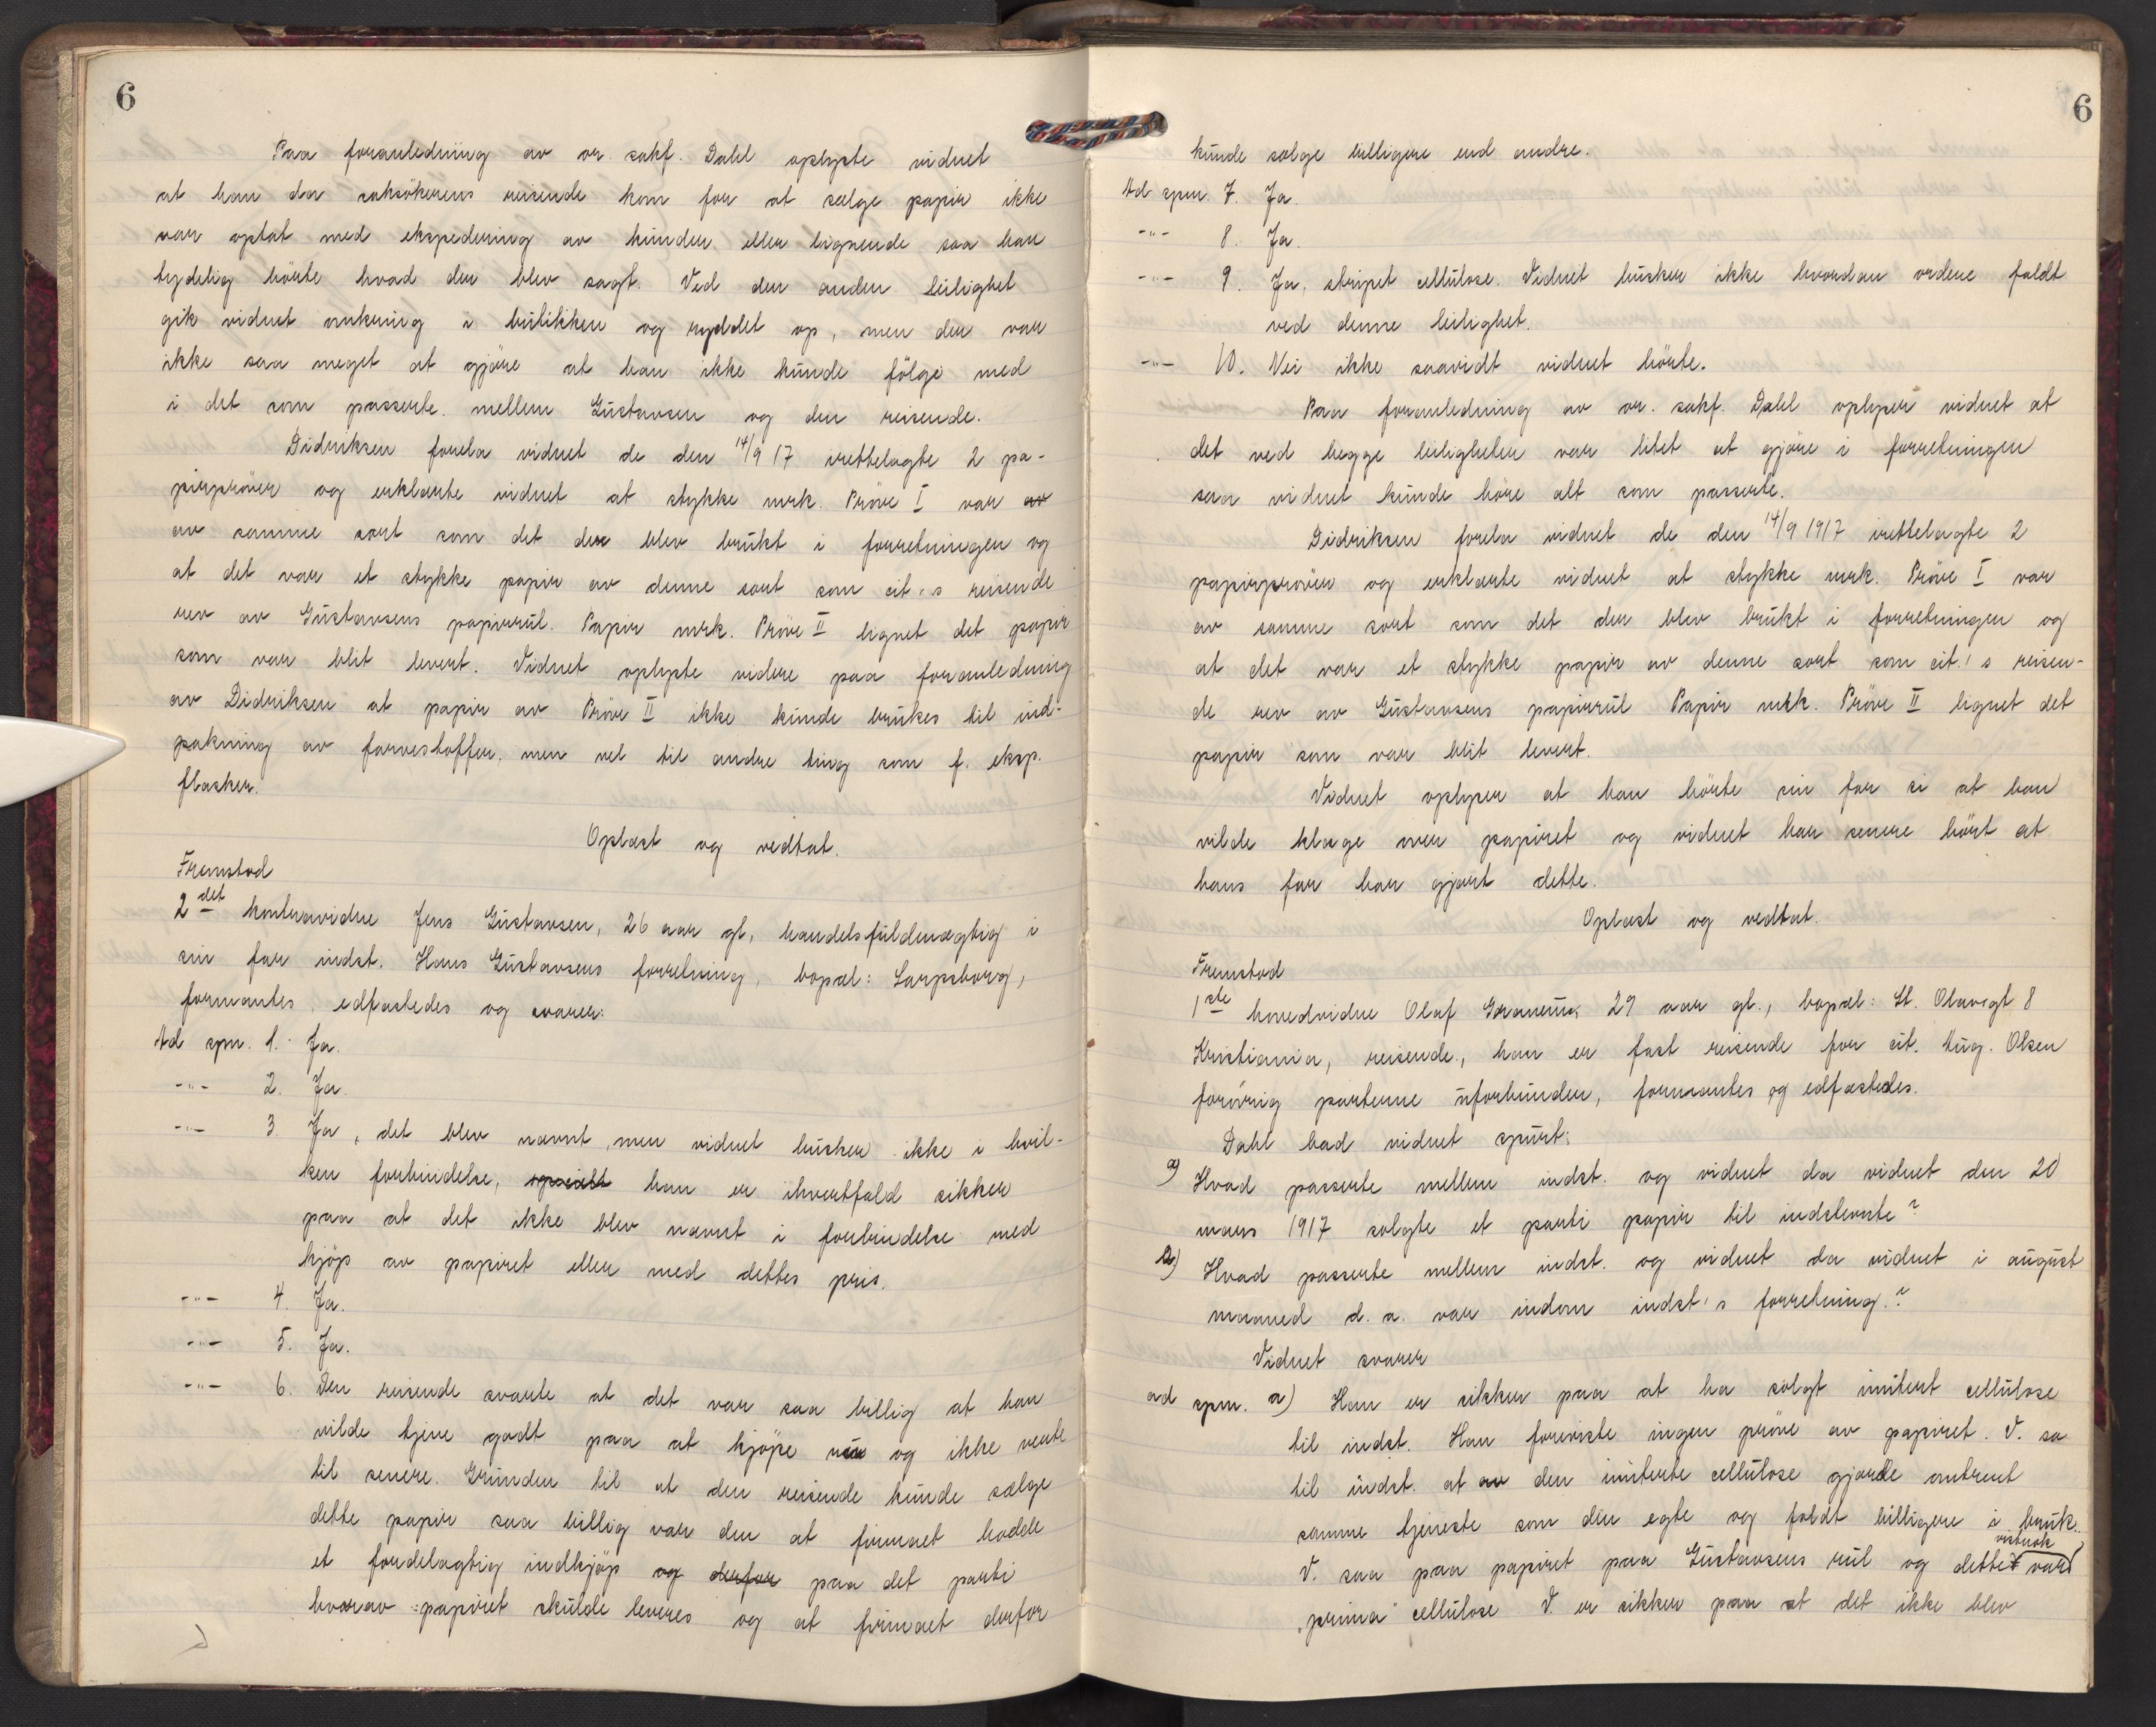 6
Paa foranledning av or. sakf. Dahl oplyste vidnet
at han da saksökerens reisende kom for at sælge papir ikke
var optat med ekspedering av kunder eller lignende saa han
tydelig hörte hvad der blev sagt. Ved den anden leilighet
gik vidnet omkring i butikken og ryddet op, men der var
ikke saa meget at gjöre at han ikke kunde fölge med
i det som passerte mellem Gustavsen og den reisende.
Didriksen forela vidnet de den 14/9 17 irettelagte 2 pa-
pirpröver og erklærte vidnet at stykke mrk. Pröve I var av
av samme sort som det der blev brukt i forretningen og
at det var et stykke papir av denne sort som cit.s reisende
rev av Gustavsens papirrul. Papir mrk. Pröve II lignet det papir
som var blit levert. Vidnet oplyste videre paa foranledning
av Didriksen at papir av Pröve II ikke kunde brukes til ind-
pakning av farvestoffer, men vel til andre ting som f. eksp.
flasker.
Oplæst og vedtat.
Fremstod
2det kontravidne Jens Gustavsen, 26 aar gl, handelsfuldmægtig i
sin far indst. Hans Gustavsens forretning, bopæl: Sarpsborg,
formantes, edfæstedes og svarer:
Ad spm. 1. Ja.
-"- 2. Ja.
-"- 3. Ja, det blev nævnt, men vidnet husker ikke i hvil-
ken forbindelse, specielt han er ihvertfald sikker
paa at det ikke blev nævnt i forbindelse med
kjöp av papiret eller med dettes pris.
-"- 4. Ja.
-"- 5. Ja.
-"- 6. Den reisende svarte at det var saa billig at han
vilde tjene godt paa at kjöpe nu og ikke vente
til senere. Grunden til at den reisende kunde sælge
dette papir saa billig var den at firmaet hadde
et fordelagtig indkjöp og derfor paa det parti
hvorav papiret skulde leveres og at firmaet derfor
6
kunde sælge billigere end andre.
Ad spm. 7. Ja.
-"- 8. Ja.
-"- 9. Ja, stripet cellulose. Vidnet husker ikke hvordan ordene faldt
ved denne leilighet.
-"- 10. Nei ikke saavidt vidnet hörte.
Paa foranledning av or. sakf. Dahl oplyser vidnet at
det ved begge leiligheter var litet at gjöre i forretningen
saa vidnet kunde höre alt som passerte.
Didriksen forela vidnet de den 14/9 1917 irettelagte 2
papirpröver og erklærte vidnet at stykke mrk. Pröve I var
av samme sort som det der blev brukt i forretningen og
at det var et stykke papir av denne sort som cit.'s reisen-
de rev av Gustavsens papirrul Papir mrk. Pröve II lignet det
papir som var blit levert.
Vidnet oplyser at han hörte sin far si at han
vilde klage over papiret og vidnet har senere hört at
hans far har gjort dette.
Oplæst og vedtat.
Fremstod
1ste hovedvidne Olaf 29 aar gl., bopæl: St. Olavsgt 8
Kristiania, reisende, han er fast reisende for cit. Aug. Olsen
forövrig parterne uforbunden, formantes og edfæstedes.
Dahl bad vidnet spurt:
a) Hvad passerte mellem indst. og vidnet da vidnet den 20
mars 1917 solgte et parti papir til indstevnte?
b) Hvad passerte mellem indst. og vidnet da vidnet i august
maaned d. a. var indom indst's forretning?
Vidnet svarer
ad spm. a) Han er sikker paa at ha solgt imitert cellulose
til indst. Han foreviste ingen pröve av papiret. V. sa
til indst. at av den imiterte cellulose gjorde omtrent
samme tjeneste som den egte og faldt billigere i bruk.
V. saa paa papiret paa Gustavsens rul og dette var vistnok
"prima" cellulose V. er sikker paa at det ikke blev